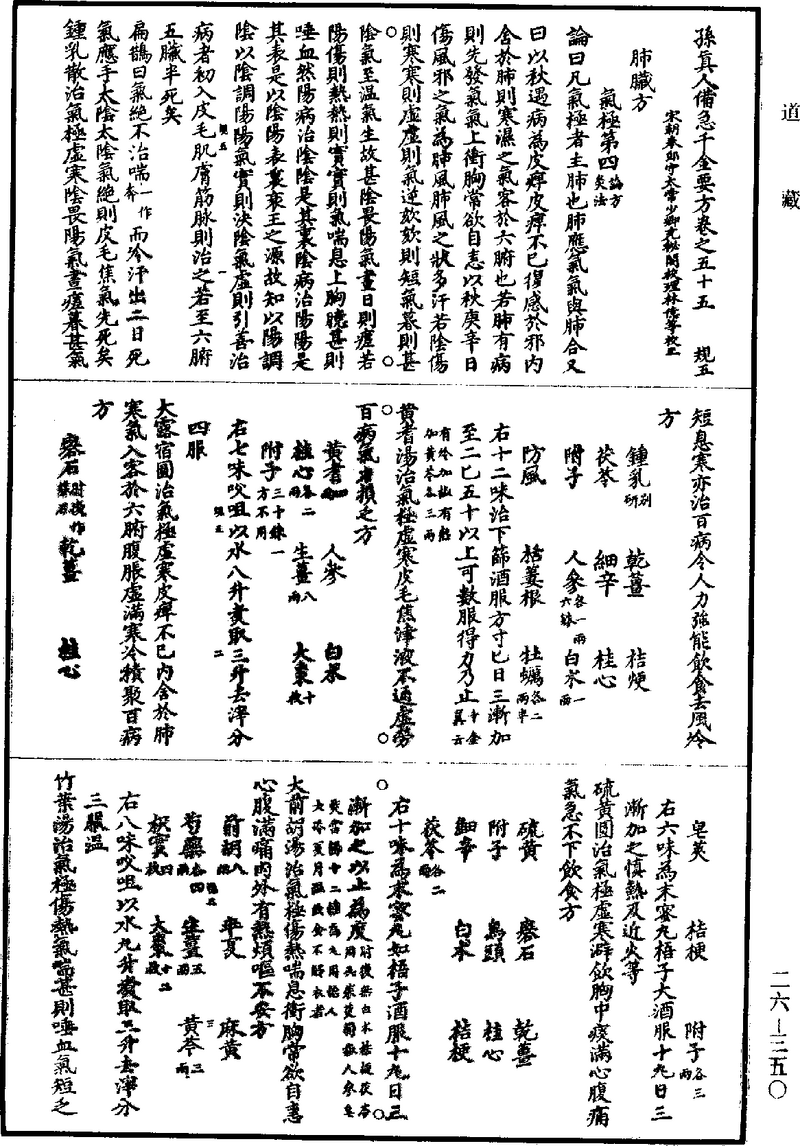 道藏
孫真人備急千金要方卷之五十五 規五
宋朝奉郎守太常少卿充秘閣校理林億等校正
肺臟方
氣極第四 論方灸法
論曰凡氣極者主肺也肺應氣氣與肺合又
曰以秋遇病為皮痺皮痺不已復感於邪內
舍於肺則寒濕之氣客於六腑也若肺有病
則先發氣氣上衝胸常欲自恚以秋庚辛日
傷風邪之氣為肺風肺風之狀多汗若陰傷
則寒寒則虛虛則氣逆欬欬則短氣暮則甚
陰氣至温氣生故甚陰畏陽氣晝日則瘥若
陽傷則熱熱則實實則氣喘息上胸臆甚則
唾血然陽病治陰陰是其裏陰病治陽陽是
其表是以陰陽表裏衰王之源故知以陽調
陰以陰調陽陽氣實則決陰氣虛則引善治
病者初入皮毛肌膚筋脉則治之若至六腑
五臟半死矣
扁鵲曰氣絕不治喘一作奔而冷汗出二日死
氣應手太陰太陰氣絕則皮毛焦氣先死矣
鍾乳散治氣極虛寒陰畏陽氣晝瘥暮甚氣
短息寒亦治百病令人力強能飲食去風冷
方
鍾乳別研 乾薑 桔梗
茯苓 細辛 桂心
附子 人參各一兩六銖 白朮一兩
防風 栝蔞根 牡蠣各二兩半
右十二味治下篩酒服方寸匕日三漸加
至二匕五十以上可數服得力乃止千金翼云
有冷加椒有熱加黃芩各三兩
黃耆湯治氣極虛寒皮毛焦津液不通虛勞
百病氣力損乏方
黃耆四兩 人參 白朮
桂心各二兩 生薑八兩 大棗十枚
附子三十銖一方不用
右七味㕮咀以水八升煮取三升去滓分
四服
大露宿圓治氣極虛寒皮痺不已內舍於肺
寒氣入客於六腑腹脹虛滿寒冷積聚百病
方
礜石肘後作礬石 乾薑 桂心
皂莢 桔梗 附子各三兩
右六味為末蜜丸梧子大酒服十丸日三
漸加之慎熱及近火等
硫黃圓治氣極虛寒澼飲胸中痰滿心腹痛
氣急不下飲食方
硫黃 礜石 乾薑
附子 烏頭 桂心
細辛 白朮 桔梗
茯苓各二兩
右十味為末蜜丸如梧子酒服十丸日三
漸加之以上為度
大前胡湯治氣極傷熱喘息衝胸常欲自恚
心腹滿痛內外有熱煩嘔不安方
前胡八兩 半夏 麻黃
芍藥各四兩 生薑五兩 黃芩三兩
枳實四枚 大棗十二枚
右八味㕮咀以水九升煮取三升去滓分
三服温
竹葉湯治氣極傷熱氣喘甚則唾血氣短乏
二六—三五〇